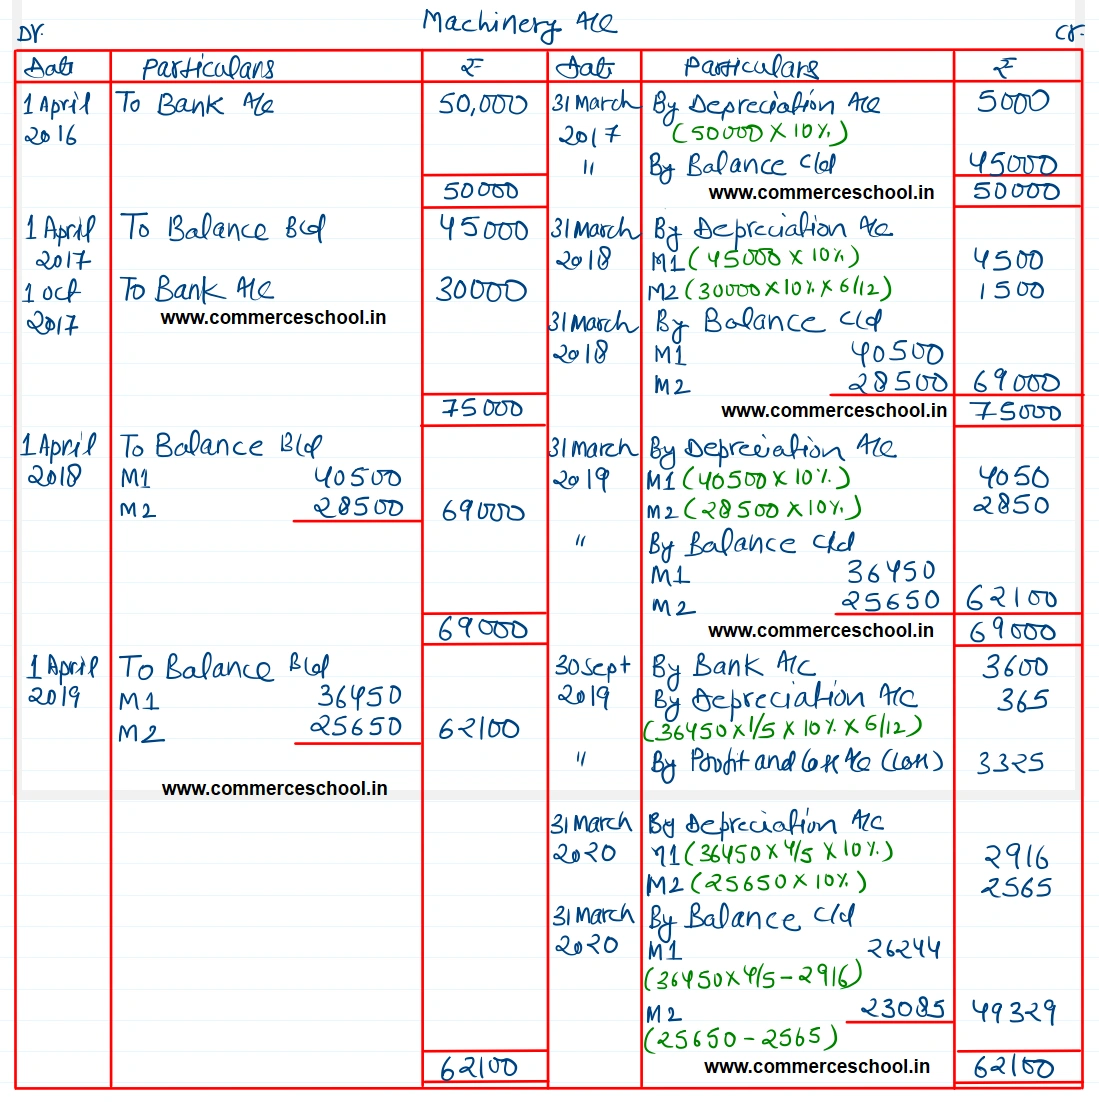 Machinery A/c
Dr. Cr.
Date Particulars ₹ Date Particulars ₹
1 April To Bank A/c 50,000 31 March By Depreciation A/c 5000
2016 2017 (50000 X 10%)
" By Balance c/d 45000
www.commerceschool.in
50000 50000
1 April To Balance B/d 45000 31 March By Depreciation A/c
2017 2018 M1 (45000 X 10%) 4500
1 Oct To Bank A/c 30000 M2 (30000 X 10% X 6/12) 1500
2017 www.commerceschool.in 31 March By Balance c/d
2018 M1 40500
M2 28500 69000
75000 www.commerceschool.in 75000
1 April To Balance B/d 31 March By Depreciation A/c
2018 M1 40500 2019 M1 (40500 X 10%) 4050
M2 28500 69000 M2 (28500 X 10%) 2850
" By Balance c/d
M1 36450
M2 25650 62100
69000 www.commerceschool.in 69000
1 April To Balance B/d 30 Sept By Bank A/c 3600
2019 M1 36450 2019 By Depreciation A/c 365
M2 25650 62100 (36450 X 1/5 X 10% X 6/12)
" By Profit and Loss A/c (Loss) 3325
www.commerceschool.in
31 March By Depreciation A/c
2020 M1 (36450 X 4/5 X 10%) 2916
M2 (25650 X 10%) 2565
31 March By Balance c/d
2020 M1 26244
(36450 X 4/5 - 2916)
M2 23085 49329
(25650 - 2565)
62100 www.commerceschool.in 62100